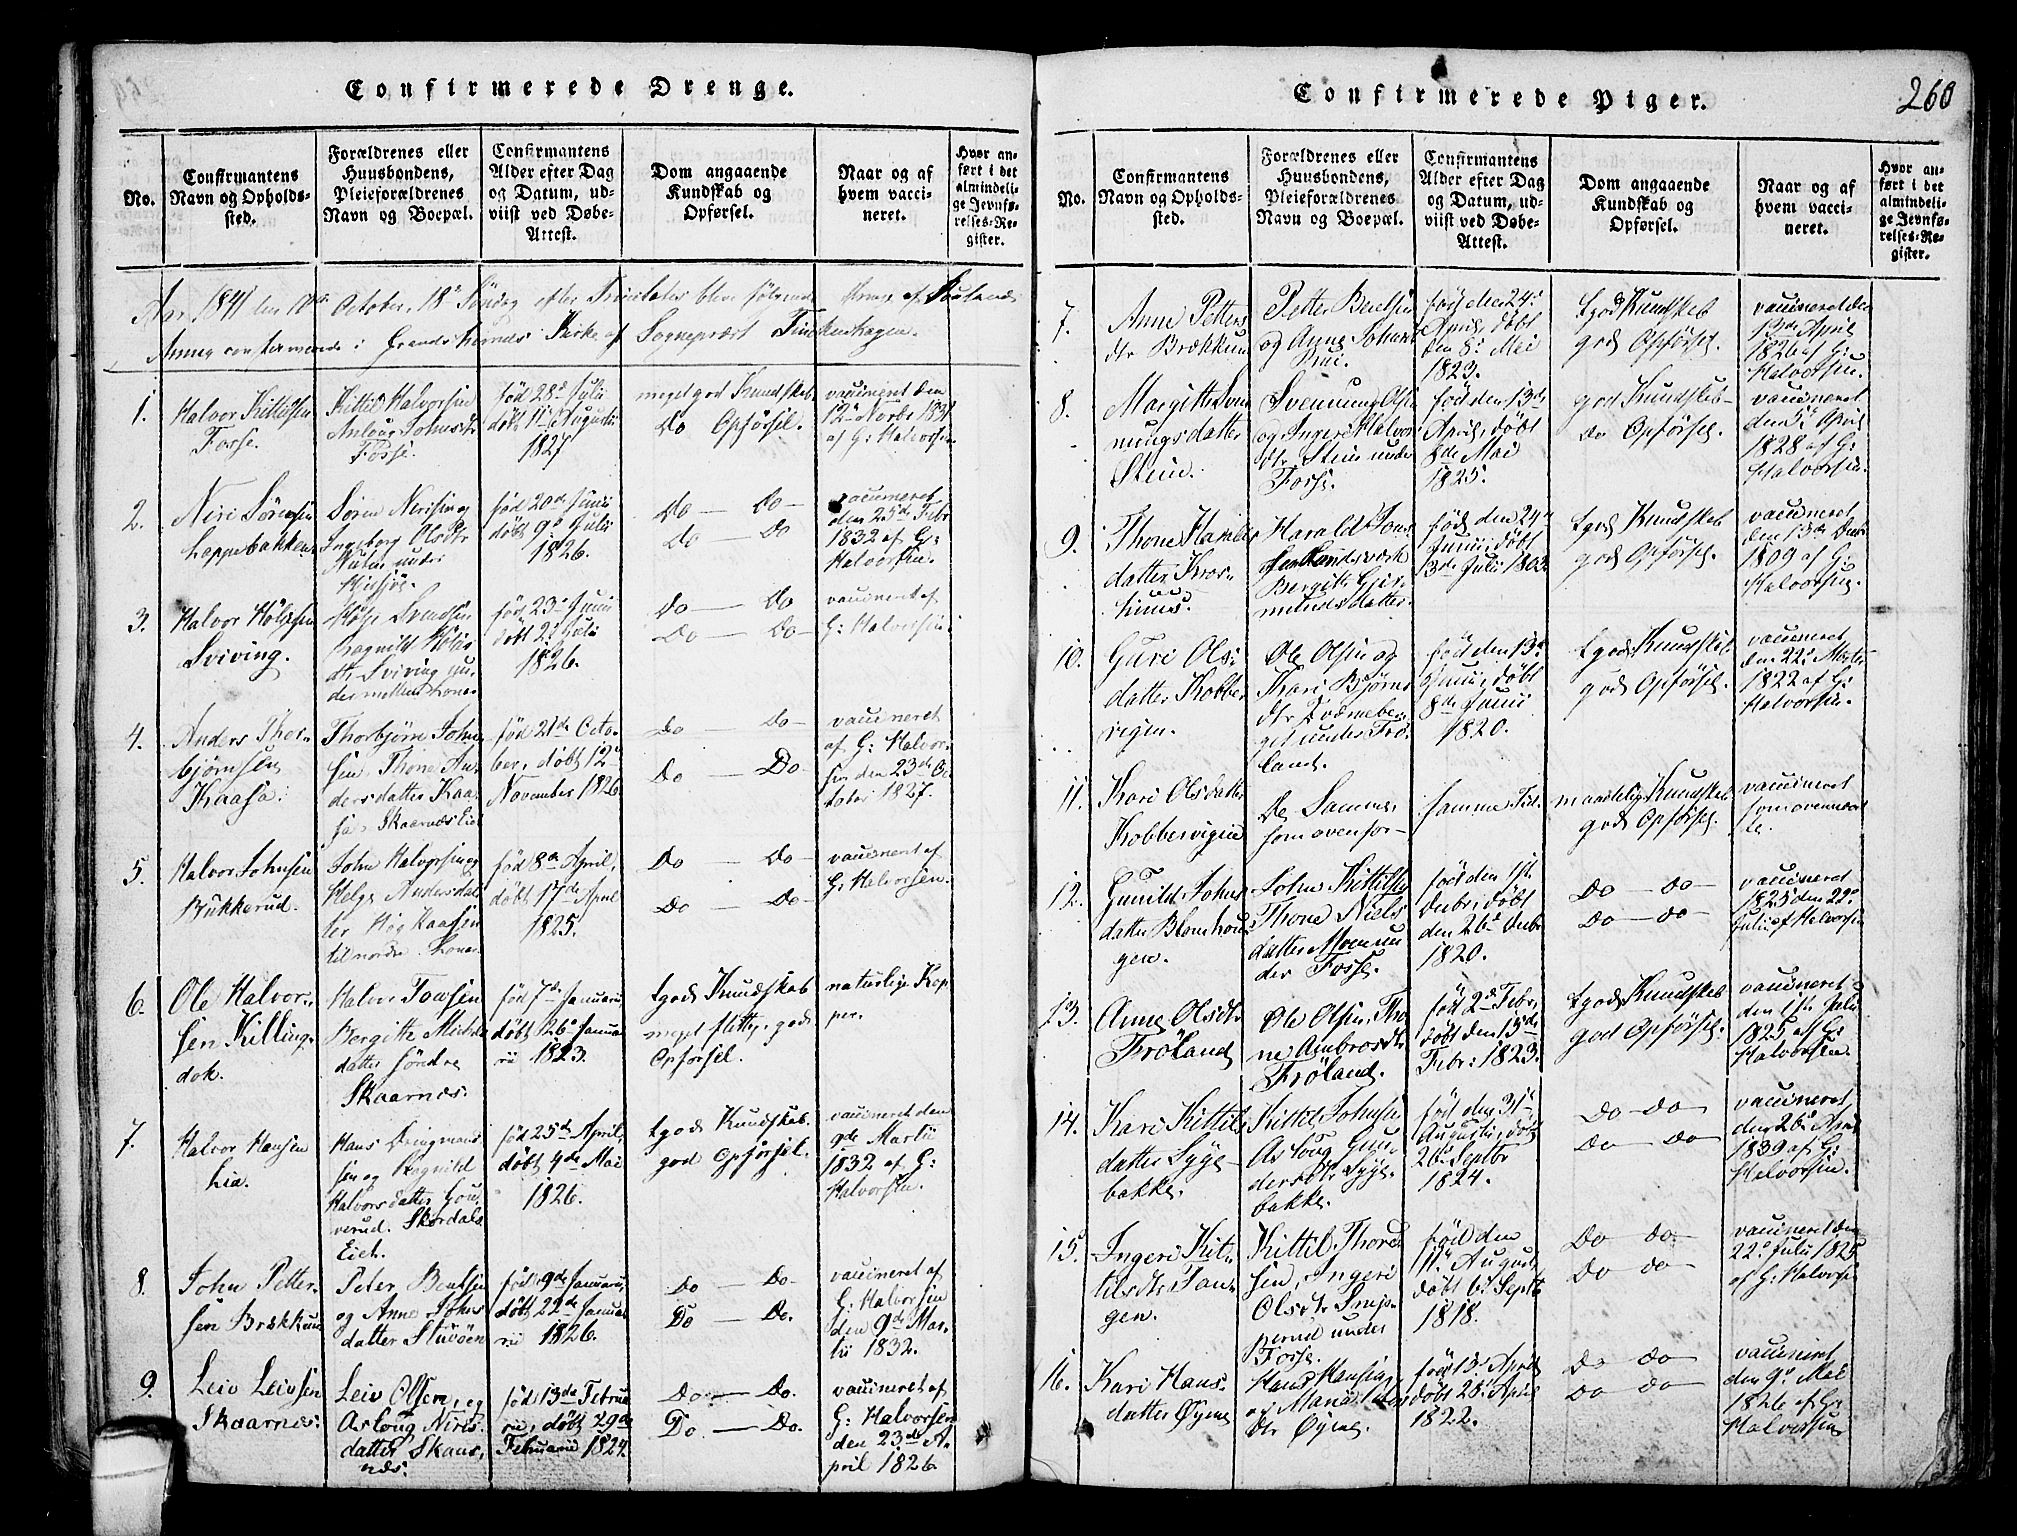 Confirmerede Drenge.
No.
Confirmantens
Navn og Opholds-
sted.
Forældrenes eller
Huusbondens,
Pleieforældrenes
Navn og Boepæl.
Confirmantens
Alder efter Dag
og Datum, ud-
viist ved Døbe-
Attest.
Dom angaaende
Kundskab og
Opførsel.
Naar og af
hvem vacci-
neret.
Hvor an-
ført i det
almindeli-
ge Jevnfø-
relses-Re-
gister.
Aar 1841 den October, 18de Søndag efter Trinitatis bleve følgende af
Annex confirmerede i Kirke af Sognepræst
1.
Halvor Kittilsen
Fosse.
Kittil Halvorsen
Aslaug Johnsdtr
Fosse.
fød 28de Julii
døbt 11te Augustii
1827
meget god Kundskab
Do Opførsel.
vaccineret den
12te Novbr 1831
af G: Halvorsen
2.
Neri Sørensen
Loppebakken
Søren Nerisen og
Ingeborg Olsdtr
under
fød 20de Junii
døbt 9de Julii
1826.
Do — Do —
Do — Do
vaccineret
den 25de Febr
1832 af G:
Halvorsen.
3.
Halvor Hølgesen
Sviving.
Hølge Svendsen
Ragnild
Sviving un-
der mellem Lone
fød 23de Junii
døbt 2den Julii
1826.
Do — Do
Do — Do —
vaccineret af
G: Halvorsen
4.
Anders Thor-
bjørnsen
Kaasa.
Thorbjørn John-
sen Thone An-
dersdatter Kaa-
sa Skaarnæs Eiet
fød 21de Octo-
ber, døbt 12te
November 1826
Do — Do —
Do — Do
vaccineret
af G: Halvor-
sen den 23de Oc-
tober 1827.
5.
Halvor Johnsen
Bukkerud.
John Halvorsen og
Helge Andersdat-
ter Høg Kaasen
til nordre Lone
fød 8de April,
døbt 17de April
1825.
Do — Do —
Do — Do —
vaccineret af
G: Halvorsen.
6.
Ole Halvor-
sen Killing-
dok.
Halvor Tovsen
Bergitte Michels
datter søndre
Skaarnæs.
fød 7de Januarii
døbt 26de Janua-
rii 1823.
t. god Kundskab
meget flittig, god
Opførsel.
naturlige Kop-
per.
7.
Halvor Hansen
Lia.
Hans Dreugmans-
sen og Ragnild
Halvorsdatter Gou-
verud. Skordals
Eiet.
fød 25de April,
døbt 4de Mai
1826.
t. god Kundskab.
god Opførsel.
vaccineret den
9de Martii
1832 af G:
Halvorsen.
8.
John Petter-
sen Brækkun
Peter Bentsen
og Anne Johns
datter Stuvøen
fød 9de Januarii,
døbt 22de Janua-
rii 1826.
Do — Do —
Do — Do.
vaccineret af
G: Halvorsen
den 9de Mar-
tii 1832.
9.
Leiv Leivsen
Skaarnæs.
Leiv Olsen, og
Aslaug Niris-
datter Skaar-
næs.
fød 13de Februa-
rii, døbt 29de
Februarii 1824
Do — Do.
Do. — Do.
vaccineret af
G: Halvorsen
den 23de A-
pril 1826
Confirmerede Piger.
260
No.
Confirmantens
Navn og Opholds-
sted.
Forældrenes eller
Huusbondens,
Pleieforældrenes
Navn og Boepæl.
Confirmantens
Alder efter Dag
og Datum, ud-
viist ved Døbe-
Attest.
Dom angaaende
Kundskab og
Opførsel.
Naar og af
hvem vacci-
neret.
Hvor an-
ført i det
almindeli-
ge Jevnfø-
relses-Re-
gister.
7.
Anne Petters
dtr Brækkun
Petter Bentsen
og Anne Johans
fød den 24de
April, døbt
den 8de Mai
1823.
t. god Kundskab
god Opførsel.
vaccineret den
13de April
1826 af G:
Halvorsen.
8.
Margitte Sven
nungsdatter
Stein.
Svennung Olsen
og Ingeri Halvors
dtr Stein under
Fosse.
fød den 13de
April, døbt
8de Mai
1825.
god Kundskab —
Do Opførsel.
vaccineret
den 5te April
1828 af G:
Halvorsen.
9.
Thone Haralds
datter
Harald Jons-
sen
Bergitte
mundsdatter.
fød den 24de
Junii, døbt
3de Julii 1803
t. god Kundskab
god Opførsel.
vaccineret
den 13de Decbr
1809 af G:
Halvorsen.
10.
Guri Ols-
datter Kobber
vigen.
Ole Olsen og
Kari Bjørns
dtr Kværneber-
get under Frø-
land.
fød den 13de
Junii, døbt
8de Junii
1820.
t. god Kundskab
god Opførsel.
vaccineret
den 22de Marts
1822 af G:
Halvorsen.
11.
Kari Olsdatter
Kobbervigen
De Samme
som ovenfor —
samme Tid.
maadelig Kundskab
god Opførsel.
vaccineret
som ovenmeldt
12.
Gunild Johns
datter Blomhou
gen.
John Kittilsen
Thone Niels
datter Moen un
der Fosse.
fød den 1ste
Decbr, døbt
den 26de Decbr
1820.
Do — Do —
Do — Do —
vaccineret
1825 den 22de
Julii af Halvorsen
13.
Anne Olsdtr
Frøland
Ole Olsen, Tho-
ne Ambrosdtr
Frøland.
fød 2de Febr,
døbt den 15de
Febr: 1823.
t. god Kundskab
god Opførsel.
vaccineret
den 1ste Julii
1825 af G:
Halvorsen.
14.
Kari Kittils
datter Syge-
bakke.
Kittil Johnsen
Asloug Gun-
dersdtr Syge-
bakke.
fød den 31te
Augustii, døbt
26de Septbr
1824.
Do — Do —
Do — Do
vaccineret
den 26de
1839 af G:
Halvorsen.
15.
Ingeri Kit-
tilsdtr Tan-
gen.
Kittil Thores
sen, Ingeri
Olsdtr
under
Fosse.
fød den
11te August
døbt 6te Septbr
1818.
Do Do —
Do Do —
vaccineret den
22de Julii 1825
af G: Halvorsen
16.
Kari Hans-
datter Øyne
Hans Hansen
og
dtr Øyne.
fød 13de April
døbt 28de April
1822.
Do Do —
Do Do —
vaccineret
den 9de Mai
1826 af G:
Halvorsen